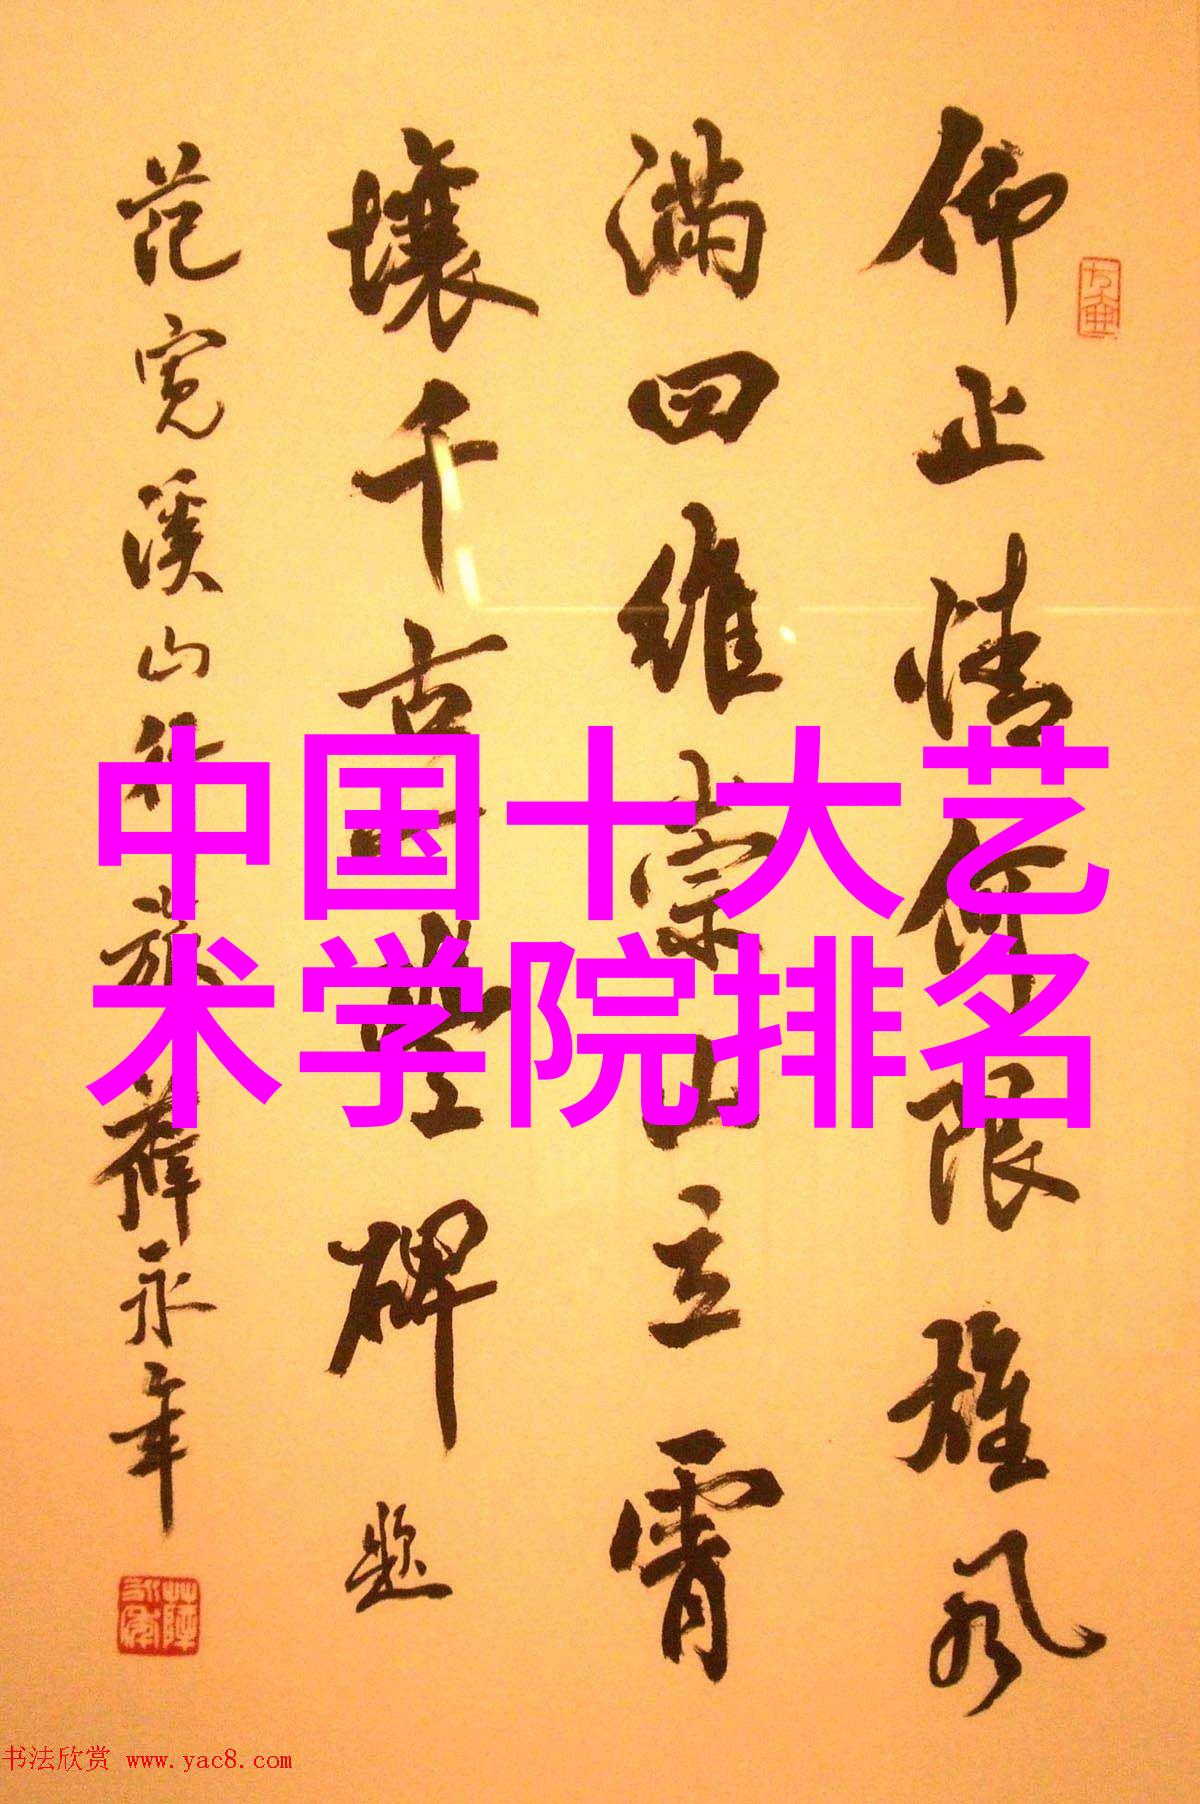 仰止情何限雄风
满四维崇山立霄
壤千古碑题
范宽溪山行旅薛永年
中国十大艺
术学院排名
书法欣赏 www.yac8.com